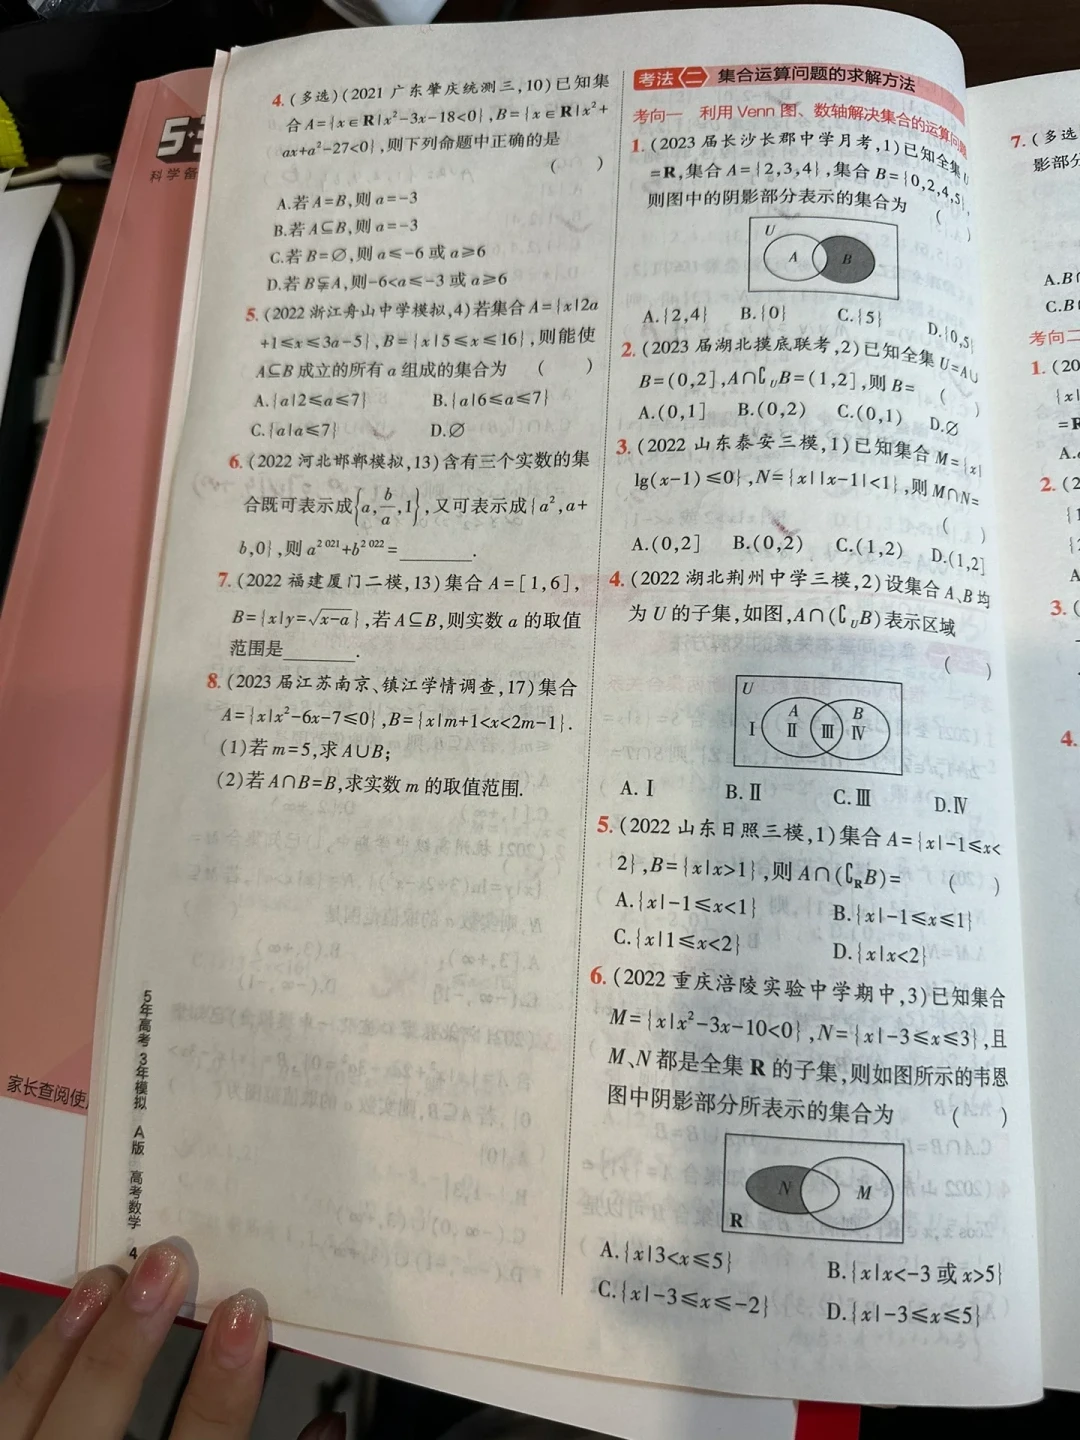 4.(多选)(2021广东肇庆统测三,10)已知集
合A={x∈R|x²-3x-18<0},B={x∈R|x²+
ax+a²-27<0},则下列命题中正确的是
(　　)
A.若A=B,则a=-3
B.若A⊆B,则a=-3
C.若B=∅,则a≤-6或a≥6
D.若B⫋A,则-6<a≤-3或a≥6
5.(2022浙江舟山中学模拟,4)若集合A={x|2a
+1≤x≤3a-5},B={x|5≤x≤16},则能使
A⊆B成立的所有a组成的集合为(　　)
A.{a|2≤a≤7}　B.{a|6≤a≤7}
C.{a|a≤7}　D.∅
6.(2022河北邯郸模拟,13)含有三个实数的集
合既可表示成{a,b/a,1},又可表示成{a²,a+
b,0},则a²⁰²¹+b²⁰²²=______.
7.(2022福建厦门二模,13)集合A=[1,6],
B={x|y=√(x-a)},若A⊆B,则实数a的取值
范围是______.
8.(2023届江苏南京、镇江学情调查,17)集合
A={x|x²-6x-7≤0},B={x|m+1<x<2m-1}.
(1)若m=5,求A∪B;
(2)若A∩B=B,求实数m的取值范围.
考法二 集合运算问题的求解方法
考向一 利用Venn图、数轴解决集合的运算问题
1.(2023届长沙长郡中学月考,1)已知全集U
=R,集合A={2,3,4},集合B={0,2,4,5},
则图中的阴影部分表示的集合为(　　)
U
A B
A.{2,4}　B.{0}　C.{5}　D.{0,5}
2.(2023届湖北摸底联考,2)已知全集U=A∪
B=(0,2],A∩∁UB=(1,2],则B=(　　)
A.(0,1]　B.(0,2)　C.(0,1)　D.∅
3.(2022山东泰安三模,1)已知集合M={x|
lg(x-1)≤0},N={x||x-1|<1},则M∩N=
(　　)
A.(0,2]　B.(0,2)　C.(1,2)　D.(1,2]
4.(2022湖北荆州中学三模,2)设集合A、B均
为U的子集,如图,A∩(∁UB)表示区域
(　　)
U
A B
Ⅰ Ⅱ Ⅲ Ⅳ
A.Ⅰ　B.Ⅱ　C.Ⅲ　D.Ⅳ
5.(2022山东日照三模,1)集合A={x|-1≤x<
2},B={x|x>1},则A∩(∁RB)=(　　)
A.{x|-1≤x<1}　B.{x|-1≤x≤1}
C.{x|1≤x<2}　D.{x|x<2}
6.(2022重庆涪陵实验中学期中,3)已知集合
M={x|x²-3x-10<0},N={x|-3≤x≤3},且
M、N都是全集R的子集,则如图所示的韦恩
图中阴影部分所表示的集合为(　　)
N M
R
A.{x|3<x≤5}　B.{x|x<-3或x>5}
C.{x|-3≤x≤-2}　D.{x|-3≤x≤5}
5年高考 3年模拟 A版 高考数学 4
科学备
家长查阅使
7.(多选
影部分
A.B∩
C.B
考向二
1.(20
{x|
=R
A.
2.(2
{1
A
3.(
4.